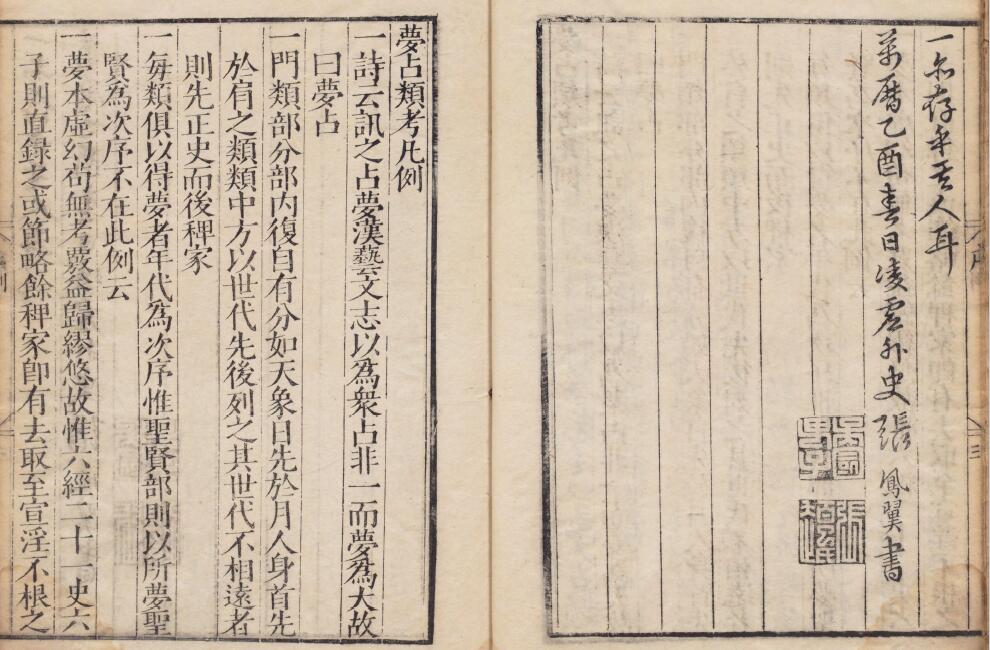 一亦存乎其人耳
萬曆乙酉春日凌虛外史張鳳翼書
夢占類考凡例
一詩云訊之占夢漢藝文志以爲衆占非一而夢爲大故
曰夢占
一門類部分部内復自有分如天象日先於月人身首先
於肩之類類中方以世代先後列之其世代不相遠者
則先正史而後稗家
一每類俱以得夢者年代爲次序惟聖賢部則以所夢聖
賢爲次序不在此例云
一夢本虛幻茍無考覈益歸繆悠故惟六經二十一史六
子則直録之或節略餘稗家即有去取至宣淫不根之